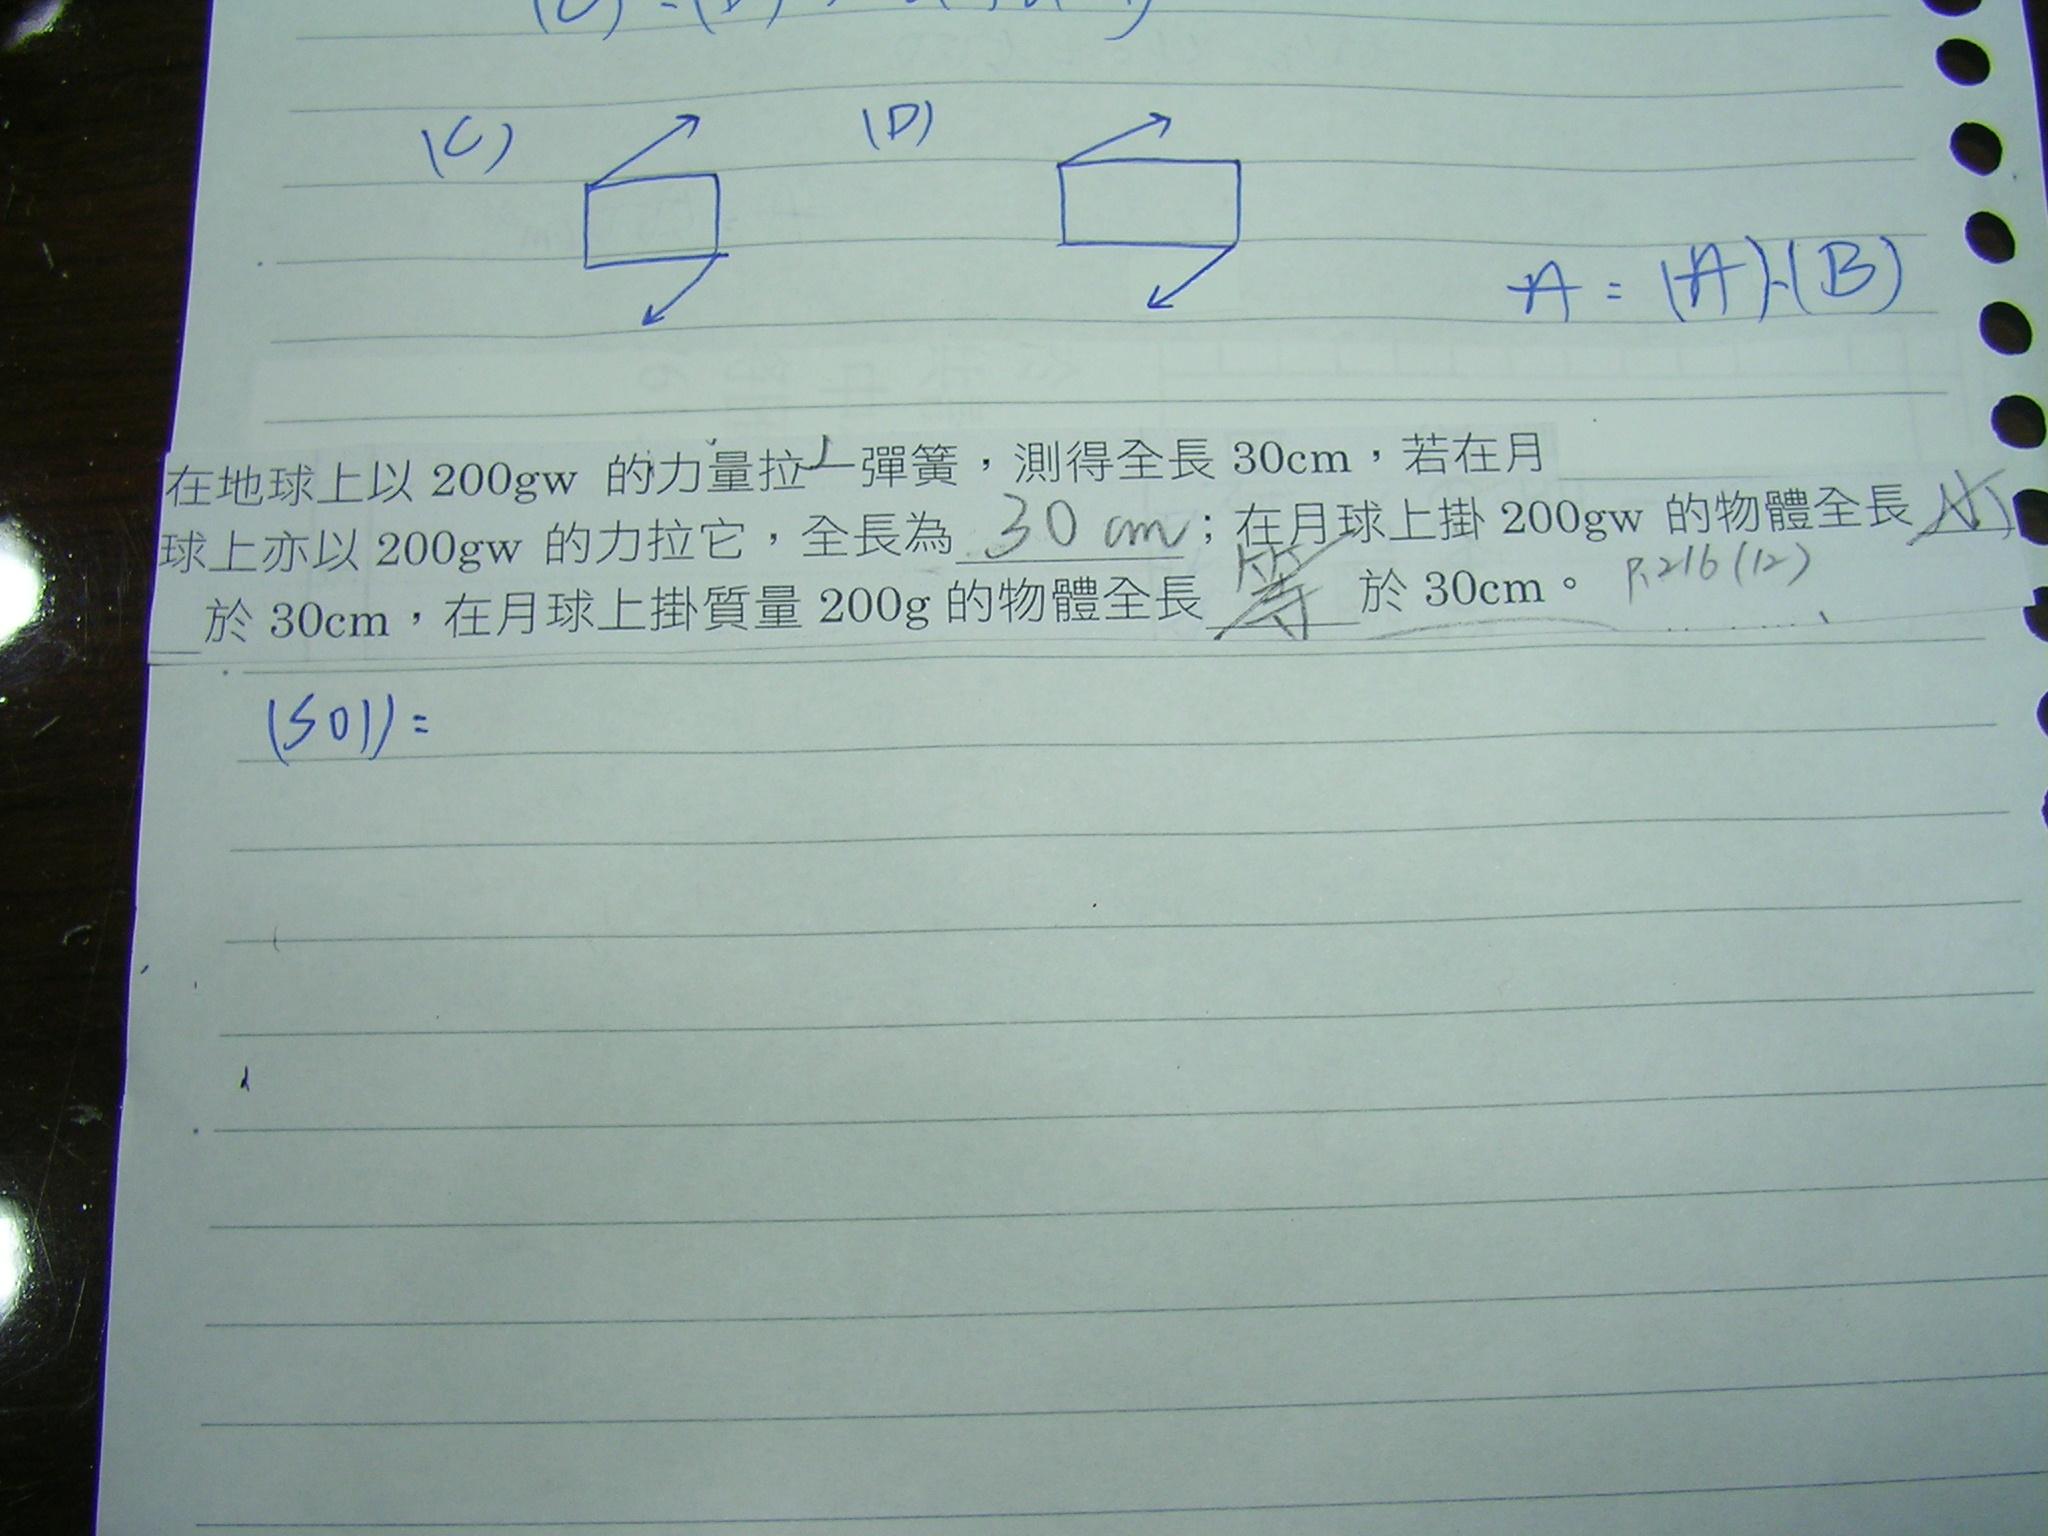 (C) (D)
A = (A)、(B)
在地球上以 200gw 的力量拉一彈簧，測得全長 30cm，若在月
球上亦以 200gw 的力拉它，全長為 30 cm ；在月球上掛 200gw 的物體全長
於 30cm，在月球上掛質量 200g 的物體全長 等 於 30cm。 P.216(12)
(sol)=